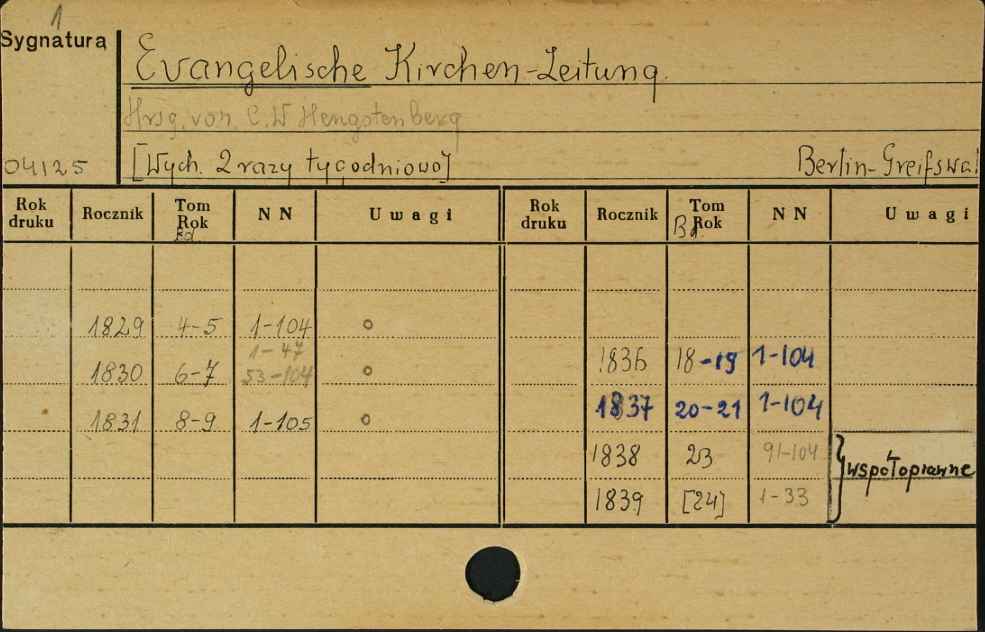 1
Sygnatura
Evangelische Kirchen-Zeitung.
Hrsg. von C.W Hengstenberg
04125 [Wych. 2 razy tygodniowo] Berlin-Greifswal
Rok druku Rocznik Tom Rok Bd. N N Uwagi Rok druku Rocznik Tom Rok Bd. N N Uwagi
1829 4-5 1-104 o
1-47
1830 6-7 53-104 o 1836 18-19 1-104
1831 8-9 1-105 o 1837 20-21 1-104
1838 23 91-104 } współoprawne
1839 [24] 1-33